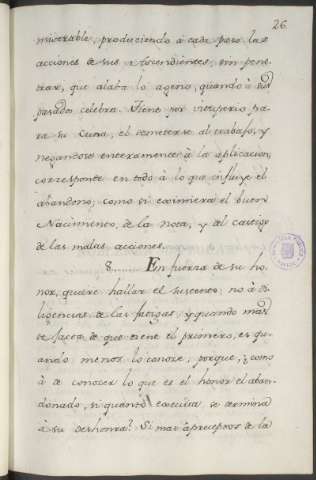 26
miserable, produciendo á cada paso las
acciones de sus ascendientes, sin pene-
trar, que alaba lo ageno, quando á sus
pasados celebra. Tiene por vituperio pa-
ra su Cuna, el someterse al trabajo, y
negandose enteramente à la aplicacion,
corresponde en todo à lo que influye el
abandono; como si eximiera el buen
Nacimiento, de la nota, y del castigo
de las malas acciones.
8. En fuerza de su ho-
nor, quiere hallar el sustento, no à di-
ligencias de las fatigas; y quando mas
se jacta de que tiene el primero, es qu-
ando menos lo conoce, porque, ¿como
à de conocer lo que es el honor el aban-
donado, si quanto executa se termina
à su deshonra? Si mas à preceptos de la